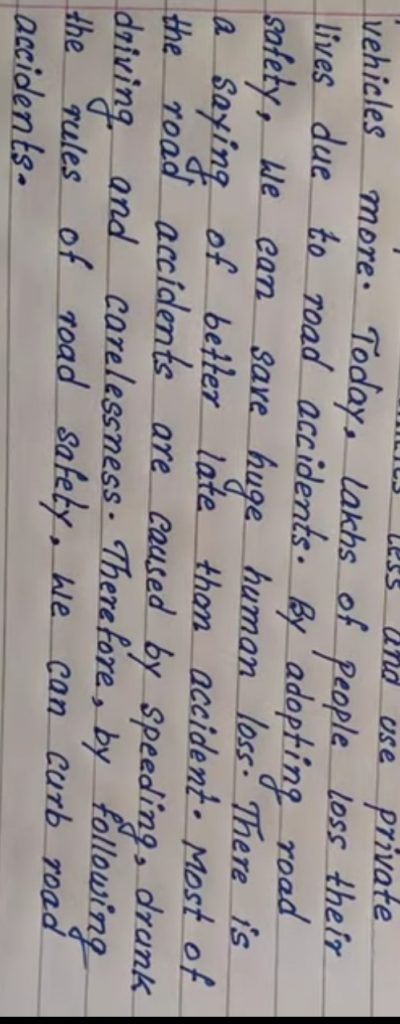 less and use private
vehicles more. Today, lakhs of people loss their
lives due to road accidents. By adopting road
safety, we can save huge human loss. There is
a saying of better late than accident. Most of
the road accidents are caused by speeding, drunk
driving and carelessness. Therefore, by following
the rules of road safety, we can curb road
accidents.